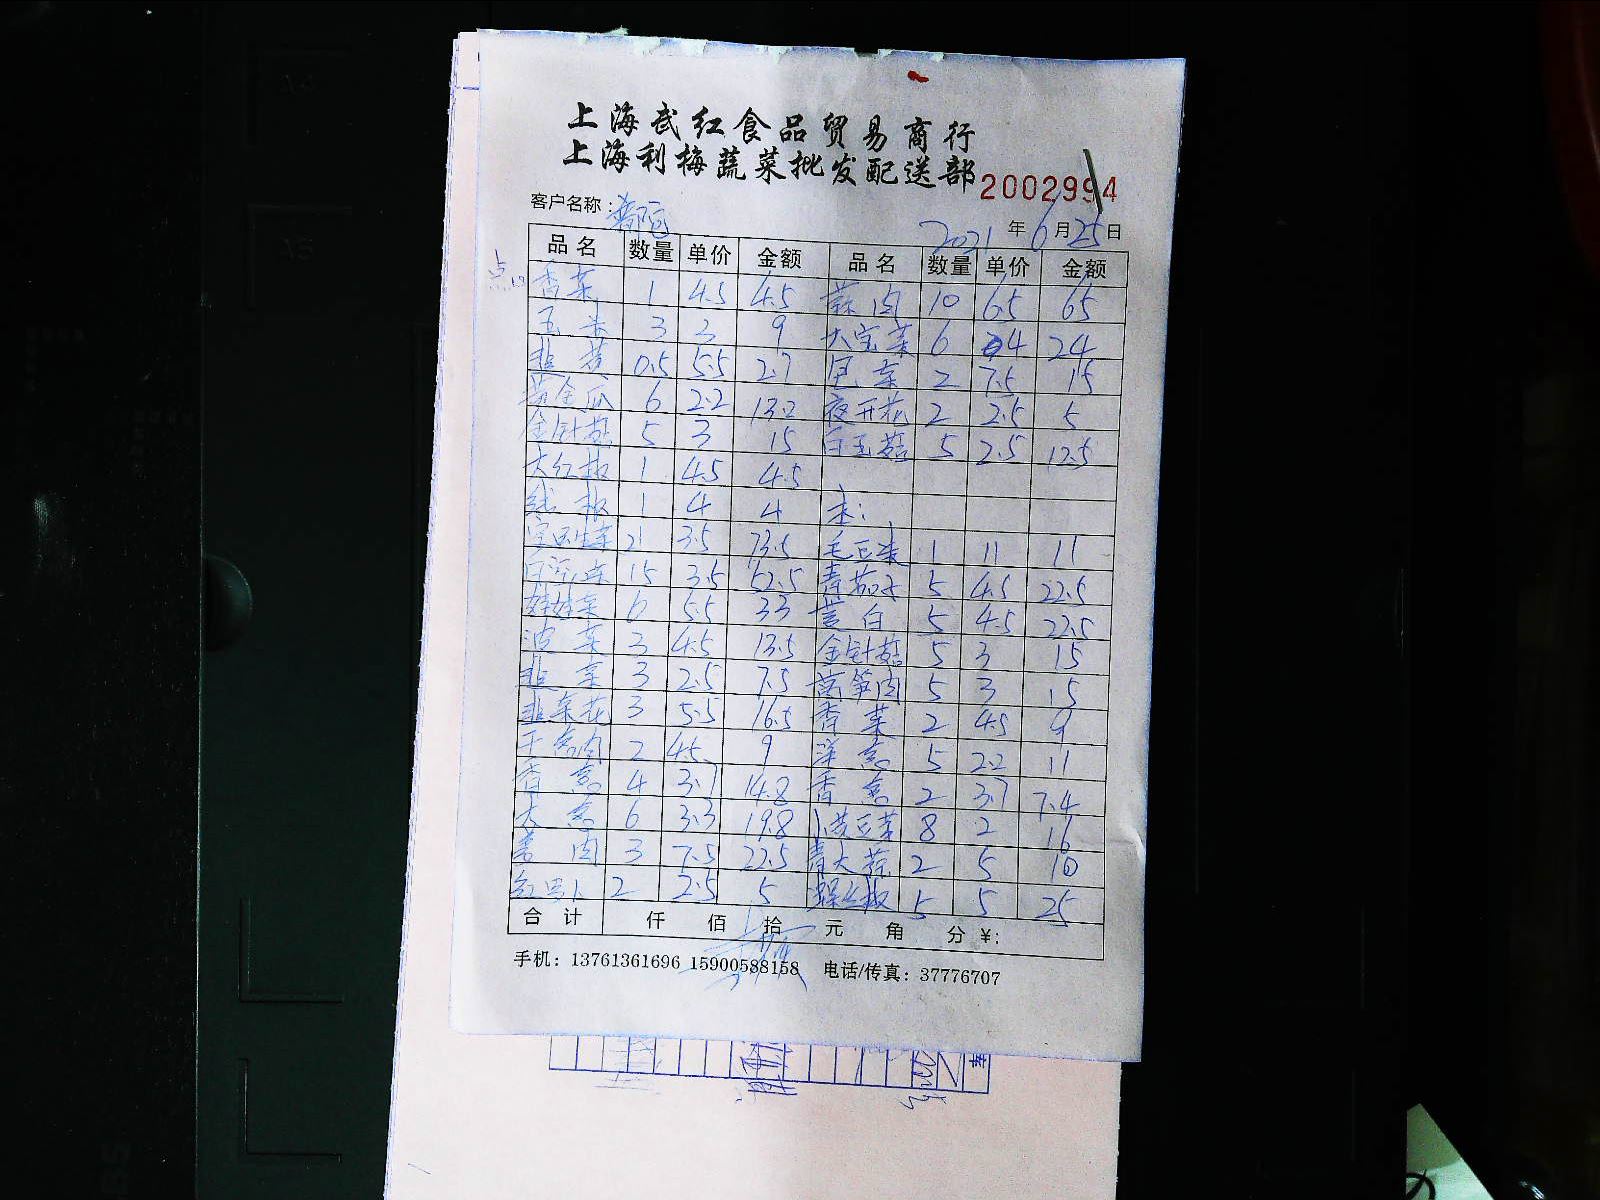 上海武红食品贸易商行
上海利梅蔬菜批发配送部 2002994
客户名称: 2021 年 6 月 25 日
品名 数量 单价 金额 品名 数量 单价 金额
香菜 1 4.5 4.5 蒜肉 10 6.5 65
玉米 3 3 9 大宝菜 6 4 24
韭黄 0.5 5.5 2.7 包菜 2 7.5 15
黄金瓜 6 2.2 13.2 夜开花 2 2.5 5
金针菇 5 3 15 白玉菇 5 2.5 12.5
大红椒 1 4.5 4.5
线椒 1 4 4
生菜 21 3.5 73.5 毛豆米 1 11 11
15 3.5 52.5 青茄子 5 4.5 22.5
娃娃菜 6 5.5 33 茭白 5 4.5 22.5
菠菜 3 4.5 13.5 金针菇 5 3 15
韭菜 3 2.5 7.5 莴笋肉 5 3 15
韭菜花 3 5.5 16.5 香菜 2 4.5 9
干葱肉 2 4.5 9 洋葱 5 2.2 11
香葱 4 3.7 14.8 香葱 2 3.7 7.4
大葱 6 3.3 19.8 小黄豆芽 8 2 16
姜肉 3 7.5 22.5 青大蒜 2 5 10
红罗卜 2 2.5 5 螺丝椒 5 5 25
合计 仟 佰 拾 元 角 分 ¥:
手机: 13761361696 15900588158 电话/传真: 37776707